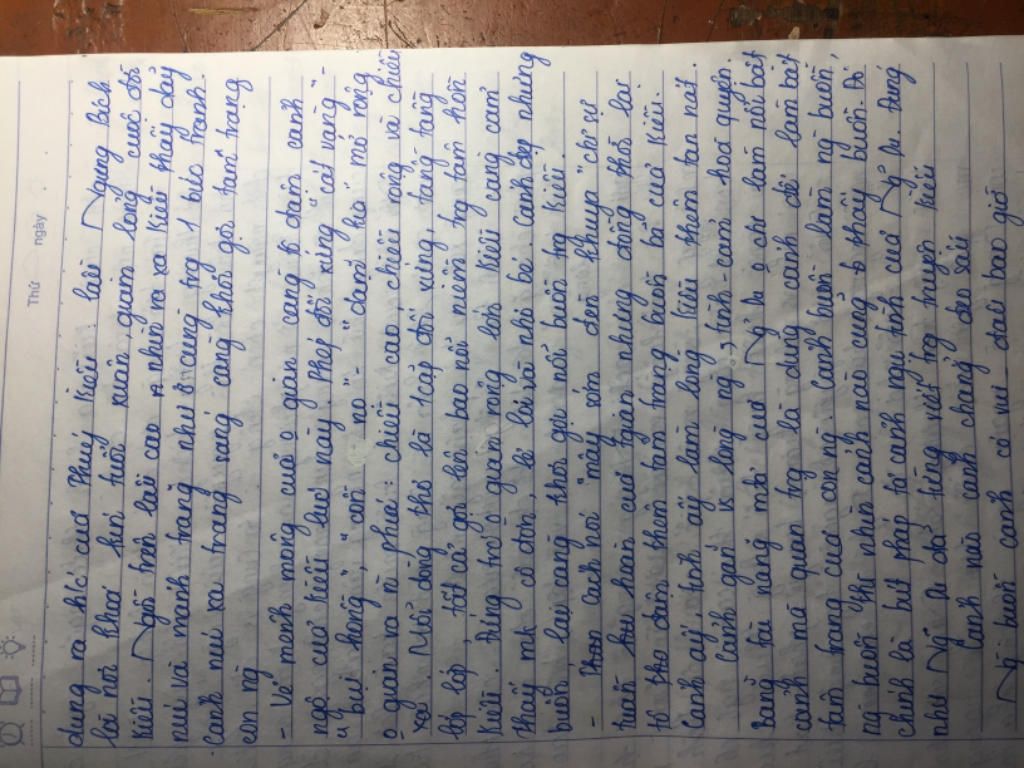 Thứ ngày
dựng ra h/c' của Thúy Kiều: lầu Ngưng Bích
lại nơi khoá kín tuổi xuân, giam lỏng cuộc đời
Kiều. Ngồi trên lầu cao nhìn ra xa Kiều thấy dãy
núi và mảnh trăng như ở cùng trg 1 bức tranh.
cảnh núi xa trăng càng khơi gợi tâm trạng
con ng
- Vẻ mênh mông của o gian càng tô đậm cảnh
ngộ của Kiều lúc này. Phép đối xứng "cát vàng" -
"bụi hồng", "cồn nọ" - "dặm kia" mở rộng
o gian ra phía: chiều cao, chiều rộng và chiều
Mỗi dòng thơ là 1 cặp đối xứng, tầng tầng
lớp lớp, tất cả gợi lên bao nỗi niềm trg tâm hồn
Kiều. Đứng trc o gian rộng lớn Kiều càng cảm
thấy mk cô đơn, lẻ loi và nhỏ bé. Cảnh đẹp nhưng
buồn lại càng khơi gợi nỗi buồn trg Kiều.
- cách nói "mây sớm đèn khuya" chỉ sự
tuần hoàn của tgian nhưng đồng thời lại
tô đậm thêm tâm trạng buồn bã của Kiều.
Cảnh ấy tình ấy làm lòng Kiều thêm tan nát.
Cảnh gắn vs lòng ng, tình-cảnh hoà quyện.
Bằng tài năng mk, của Ng Du o chỉ làm nổi bật
cảnh mà quan trg là dùng cảnh để làm bật
tâm trạng của con ng. Cảnh buồn làm ng buồn,
ng buồn thì nhìn cảnh nào cũng thấy buồn. Đó
chính là bút pháp tả cảnh ngụ tình của Ng Du. Đúng
như Ng Du đã từng viết trg truyện Kiều
Cảnh nào cảnh chẳng đeo sầu
Ng buồn cảnh có vui đâu bao giờ